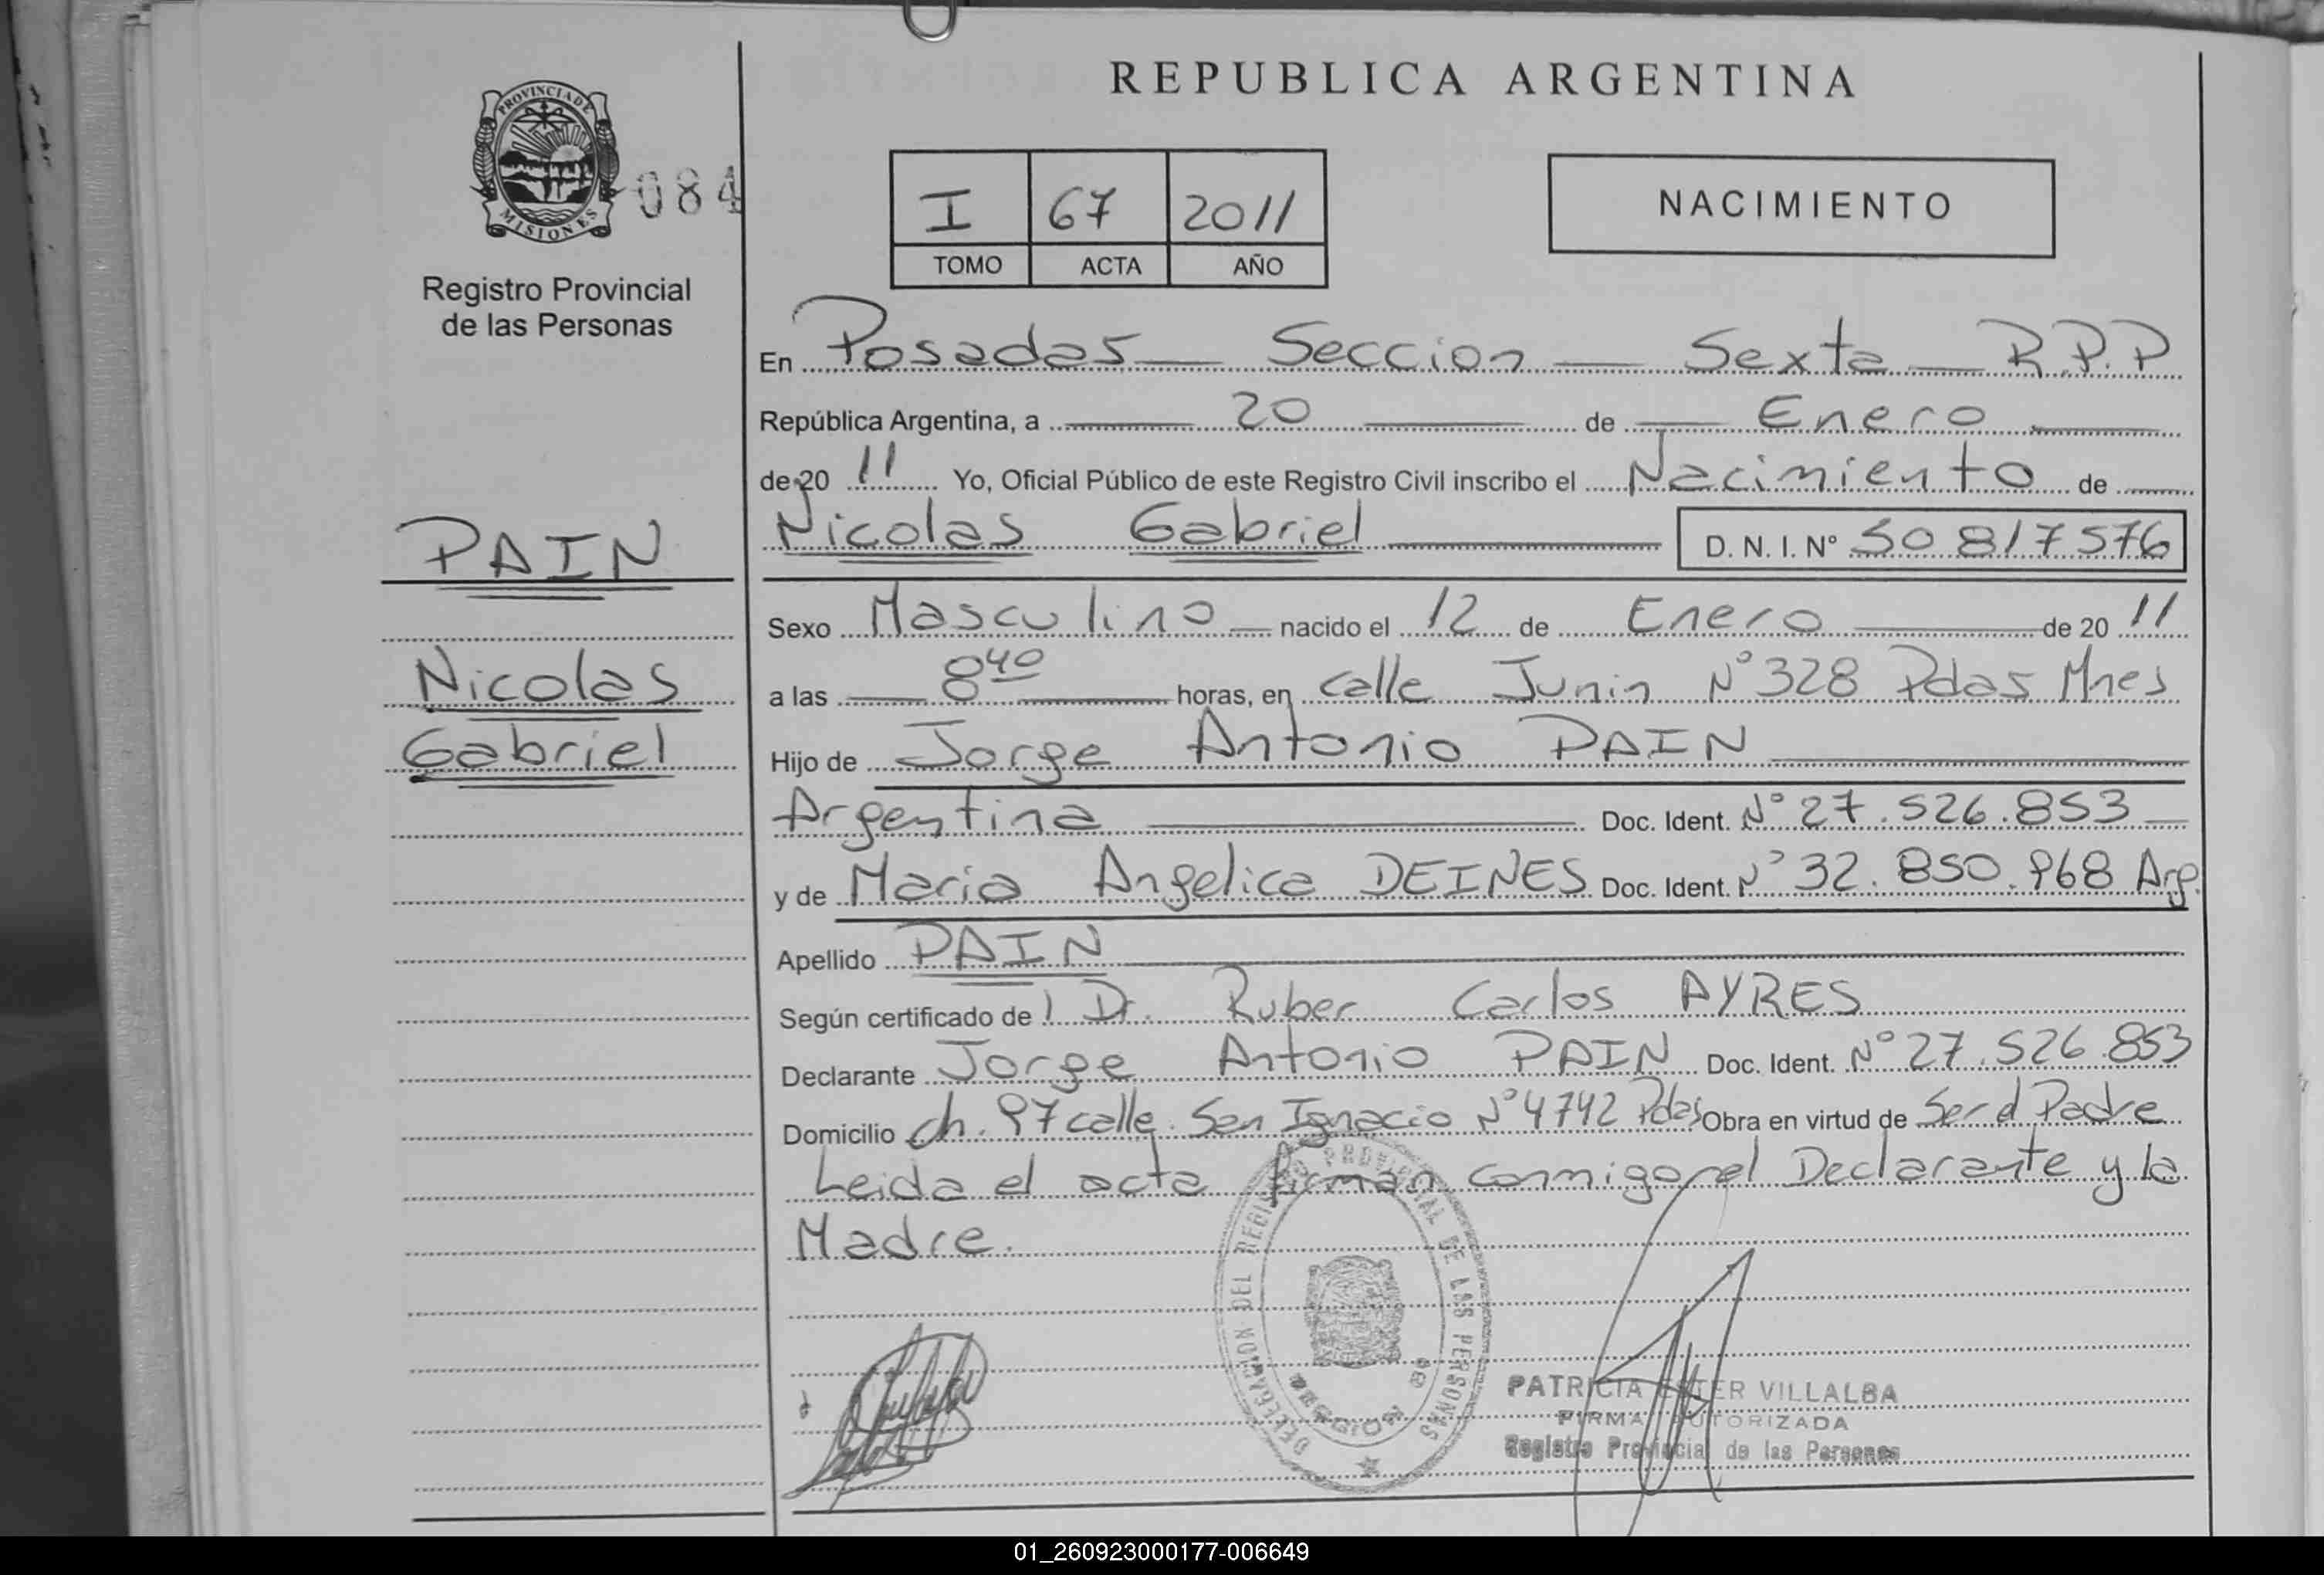 REPUBLICA ARGENTINA
PROVINCIA DE
MISIONES
084
Registro Provincial
de las Personas
I 67 2011
TOMO ACTA AÑO
NACIMIENTO
En Posadas Seccion Sexta R.P.P
República Argentina, a 20 de Enero
de 20 11 Yo, Oficial Público de este Registro Civil inscribo el Nacimiento de
Nicolas Gabriel D. N. I. Nº 50 817 576
PAIN
Nicolas
Gabriel
Sexo Masculino nacido el 12 de Enero de 20 11
a las 8 40 horas, en calle Junin Nº 328 Pdas Mnes
Hijo de Jorge Antonio PAIN
Argentina Doc. Ident. Nº 27.526.853
y de Maria Angelica DEINES Doc. Ident. Nº 32.850.968 Arg.
Apellido PAIN
Según certificado de l Dr. Ruber Carlos AYRES
Declarante Jorge Antonio PAIN Doc. Ident. Nº 27.526.853
Domicilio ch. 97 calle San Ignacio Nº 4742 Pdas Obra en virtud de Ser d Padre
Leida el acta firman conmigo el Declarante y la
Madre.
DELEGACION DEL REGISTRO PROVINCIAL DE LAS PERSONAS
PATRICIA ESTER VILLALBA
FIRMA AUTORIZADA
Registro Provincial de las Personas
01_260923000177-006649